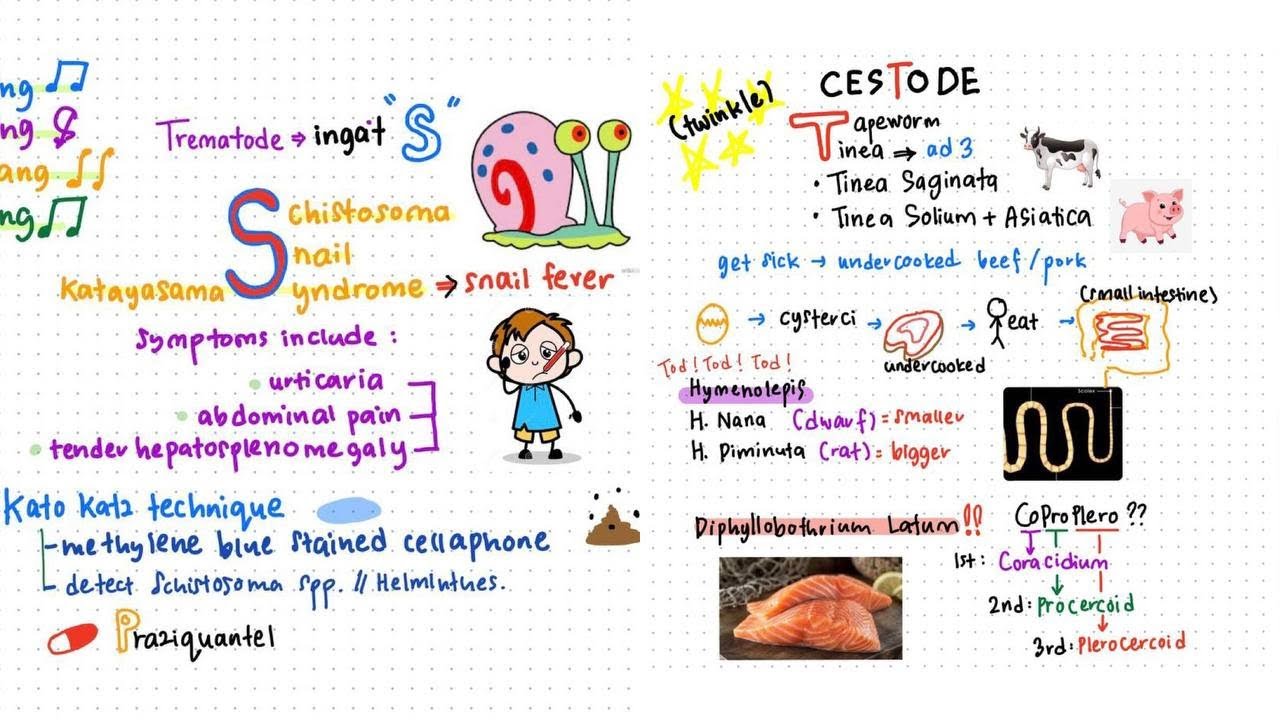 ng
ng
ang
ng
Trematode ⇒ ingat "S"
Schistosoma
Snail
Katayasama Syndrome ⇒ snail fever
Symptoms include :
urticaria
abdominal pain
tender hepatosplenomegaly
Kato Katz technique
- methylene blue stained cellaphone
- detect Schistosoma spp. // Helmintues.
Praziquantel
(twinkle)
CESTODE
Tapeworm
Tinea ⇒ ad 3
• Tinea Saginata
• Tinea Solium + Asiatica
get sick → undercooked beef / pork
(small intestine)
→ cysterci → → eat →
undercooked
Tod ! Tod ! Tod !
Hymenolepis
H. Nana (dwarf) = smaller
H. Diminuta (rat) = bigger
Scolex
Diphyllobothrium Latum !!
CoProPlero ??
1st : Coracidium
2nd : Procercoid
3rd : Plerocercoid